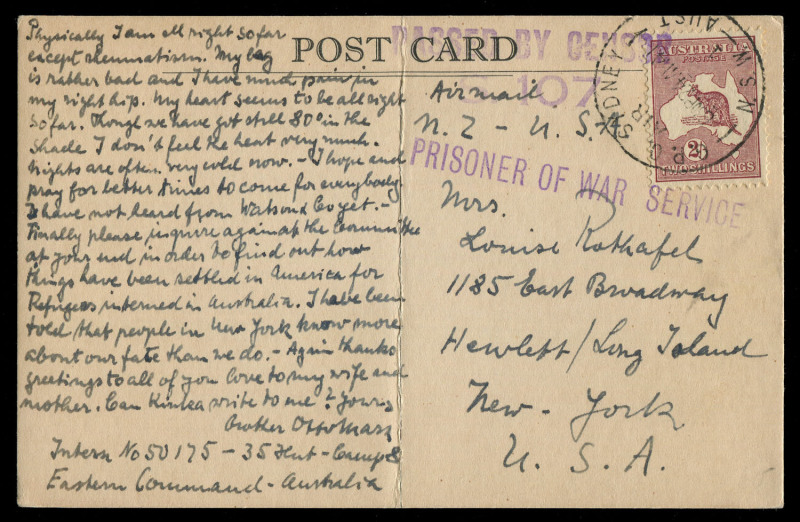 Physically I am all right so far
except rheumatism. My leg
is rather bad and I have much pain in
my right hip. My heart seems to be all right
so far. Though we have got still 80° in the
shade I don't feel the heat very much.
Nights are often very cold now. - I hope and
pray for better times to come for everybody.
I have not heard from Watson & Co yet. -
Finally please inquire again at the Committee
at your end in order to find out how
things have been settled in America for
Refugees interned in Australia. I have been
told that people in New York know more
about our fate than we do. - Again thanks
greetings to all of you love to my wife and
mother. Can write to me? Yours
brother Otto
Intern No 50175 - 35 Hut - Camp 8
Eastern Command - Australia
POST CARD
PASSED BY CENSOR
107
Airmail
N.Z - U.S.A
PRISONER OF WAR SERVICE
Mrs.
Louise Rothafel
1185 East Broadway
Hewlett/Long Island
New-York
U.S.A.
AUSTRALIA
POSTAGE
2/-
TWO SHILLINGS
SYDNEY
N.S.W
AUST